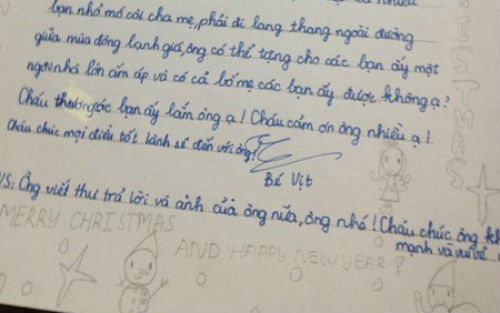 bạn nhỏ mồ côi cha mẹ, phải đi lang thang ngoài đường
giữa mùa đông lạnh giá, ông có thể tặng cho các bạn ấy một
ngôi nhà lớn ấm áp và có cả bố mẹ các bạn ấy được không ạ?
Cháu thương các bạn ấy lắm ông ạ! Cháu cảm ơn ông nhiều ạ!
Cháu chúc mọi điều tốt lành sẽ đến với ông!
Bé Vịt
/S: Ông viết thư trả lời và ảnh của ông nữa, ông nhé! Cháu chúc ông
mạnh và vui vẻ
MERRY CHRISTMAS
AND HAPPY NEW YEAR!